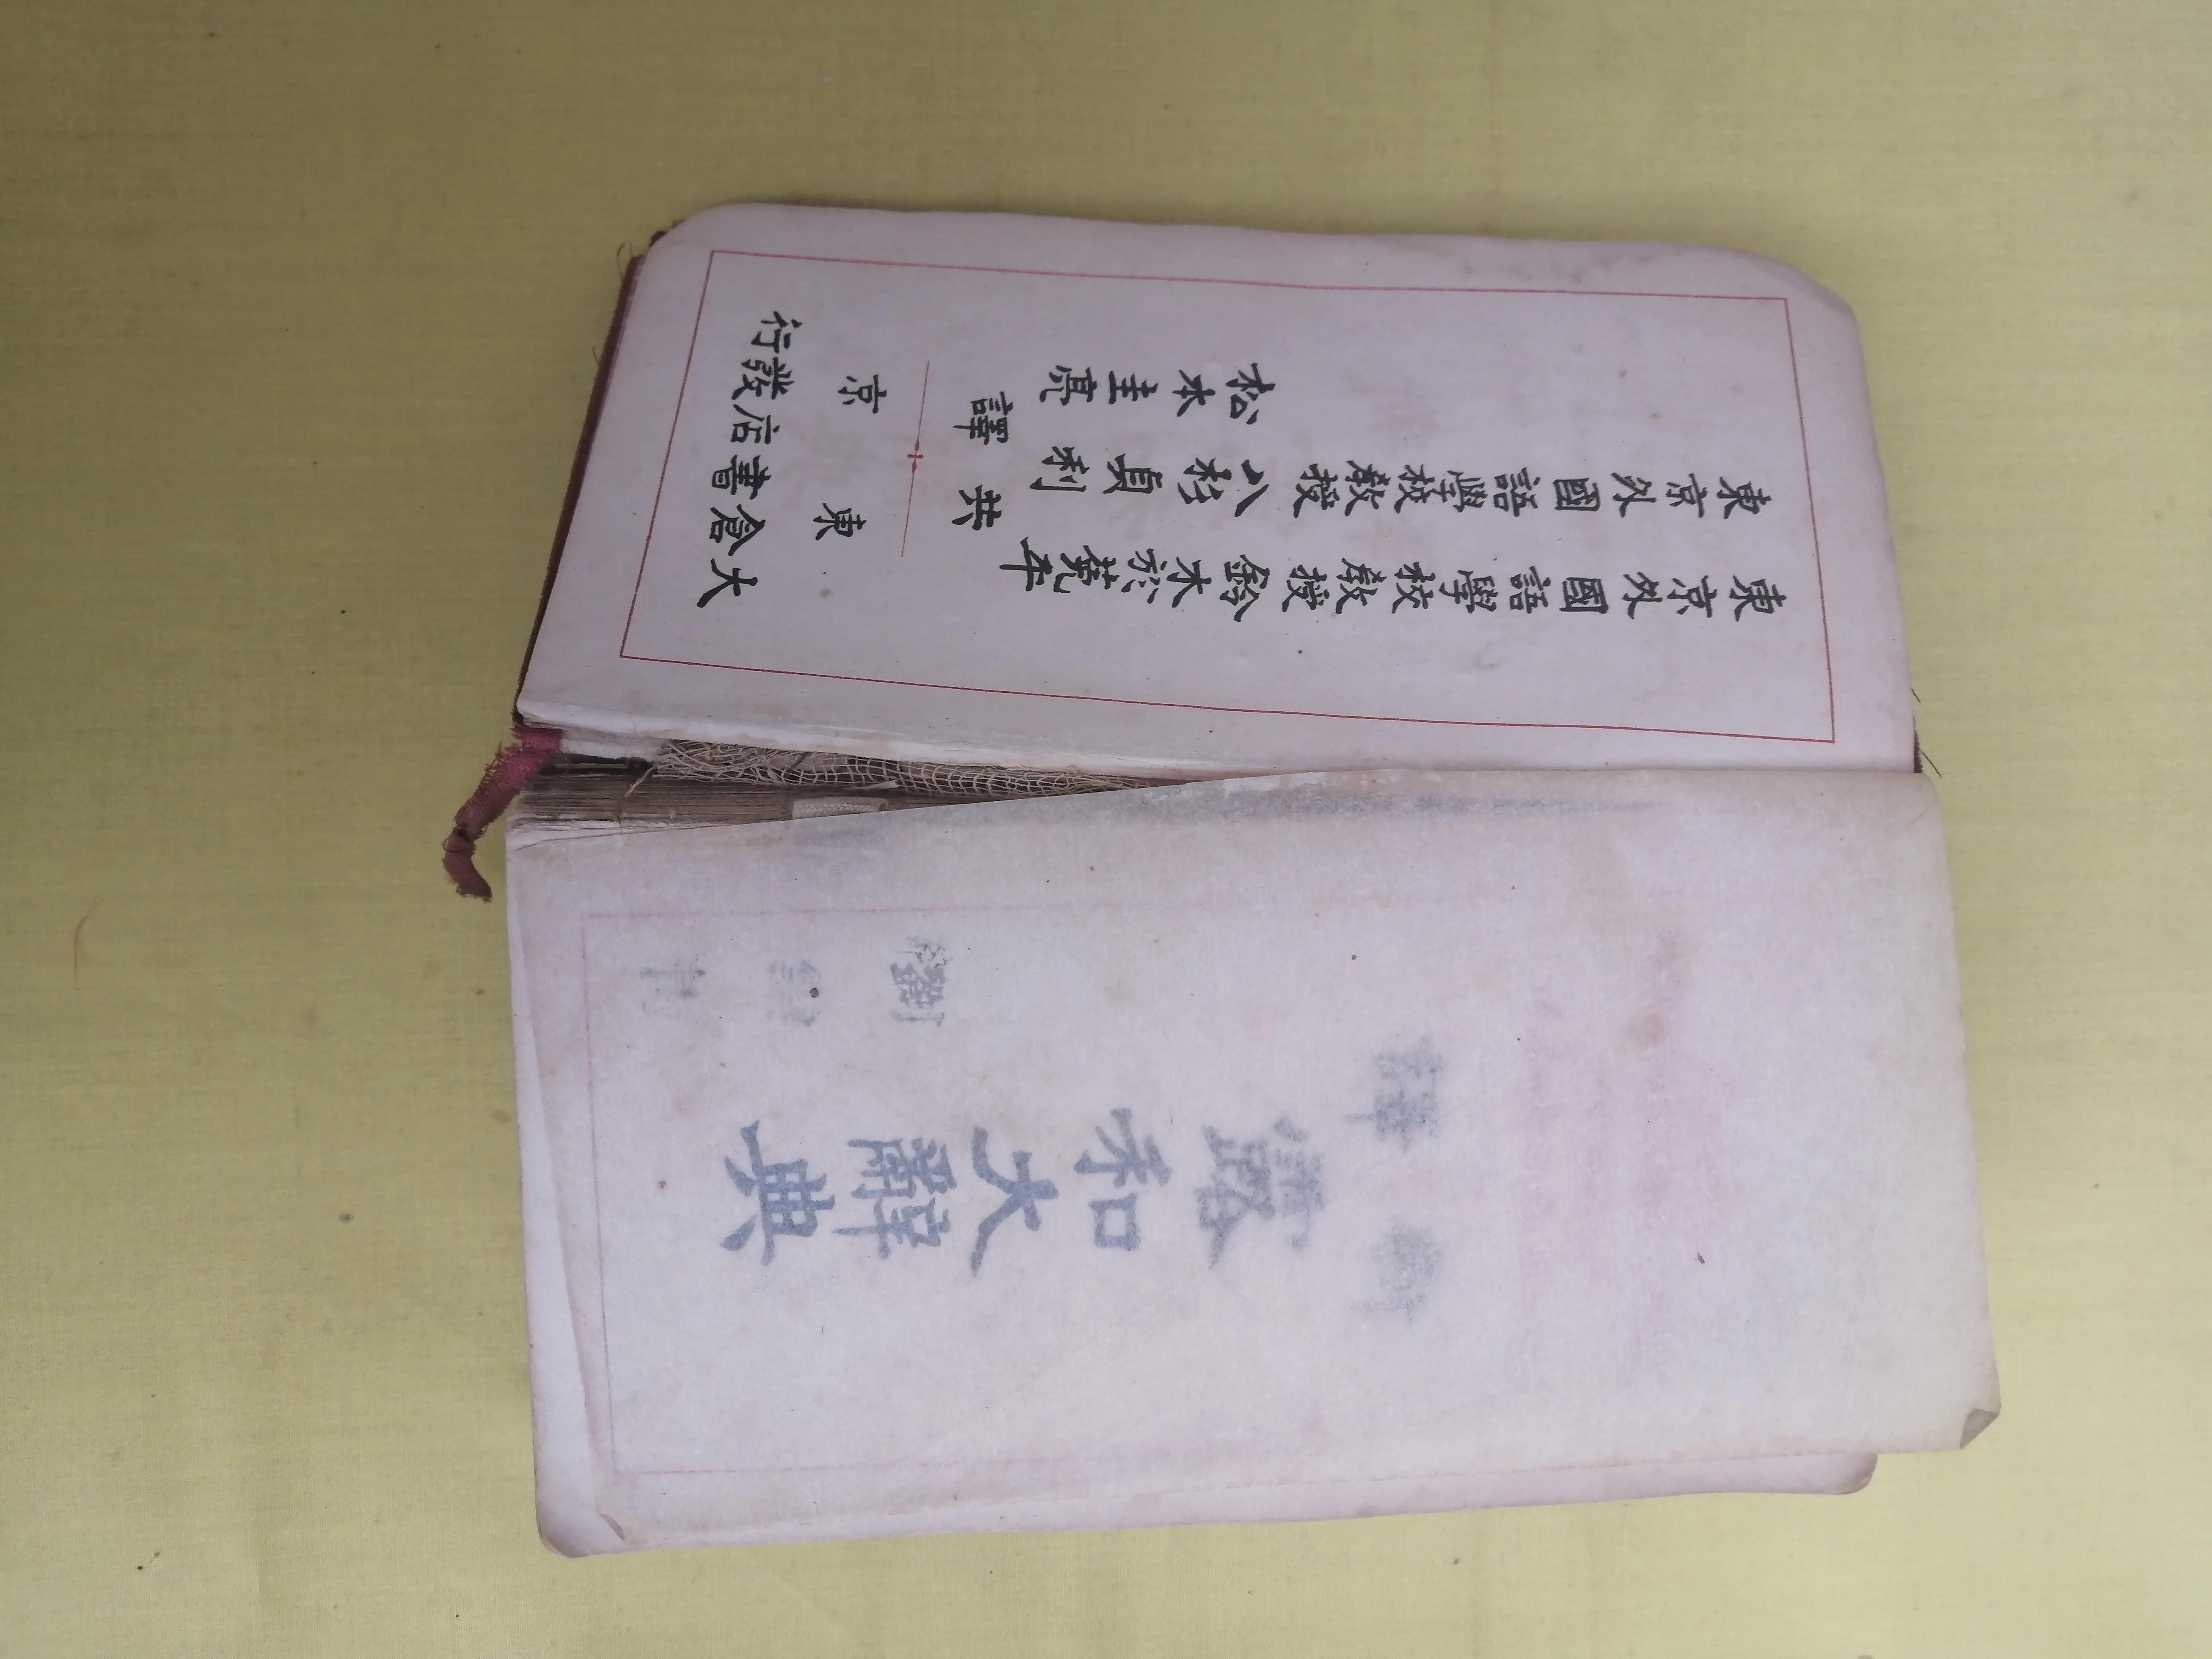 露和大辭典
東京外國語學校教授 鈴木於菟平
東京外國語學校教授 八杉貞利
松本圭亮
共譯
東京
大倉書店發行